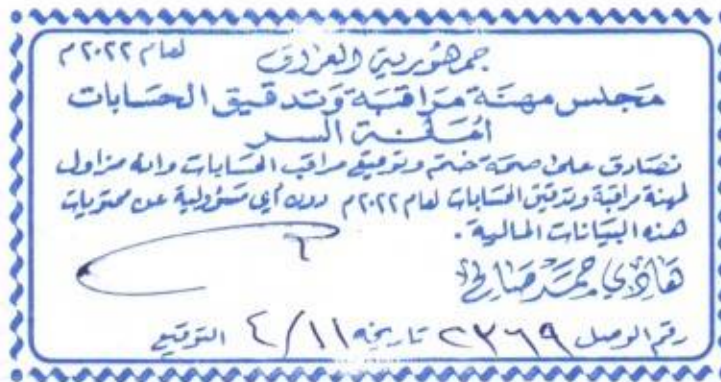 جمهورية العراق لعام ٢٠٢٢م
مجلس مهنة مراقبة وتدقيق الحسابات
أمانة السر
نصادق على صحة ختم وتوقيع مراقب الحسابات وانه مزاول
لمهنة مراقبة وتدقيق الحسابات لعام ٢٠٢٢م دون أي مسؤولية عن محتويات
هذه البيانات المالية.
هادي حمد صالح
رقم الوصل ٢٣٦٩ تاريخه ٤/١١ التوقيع